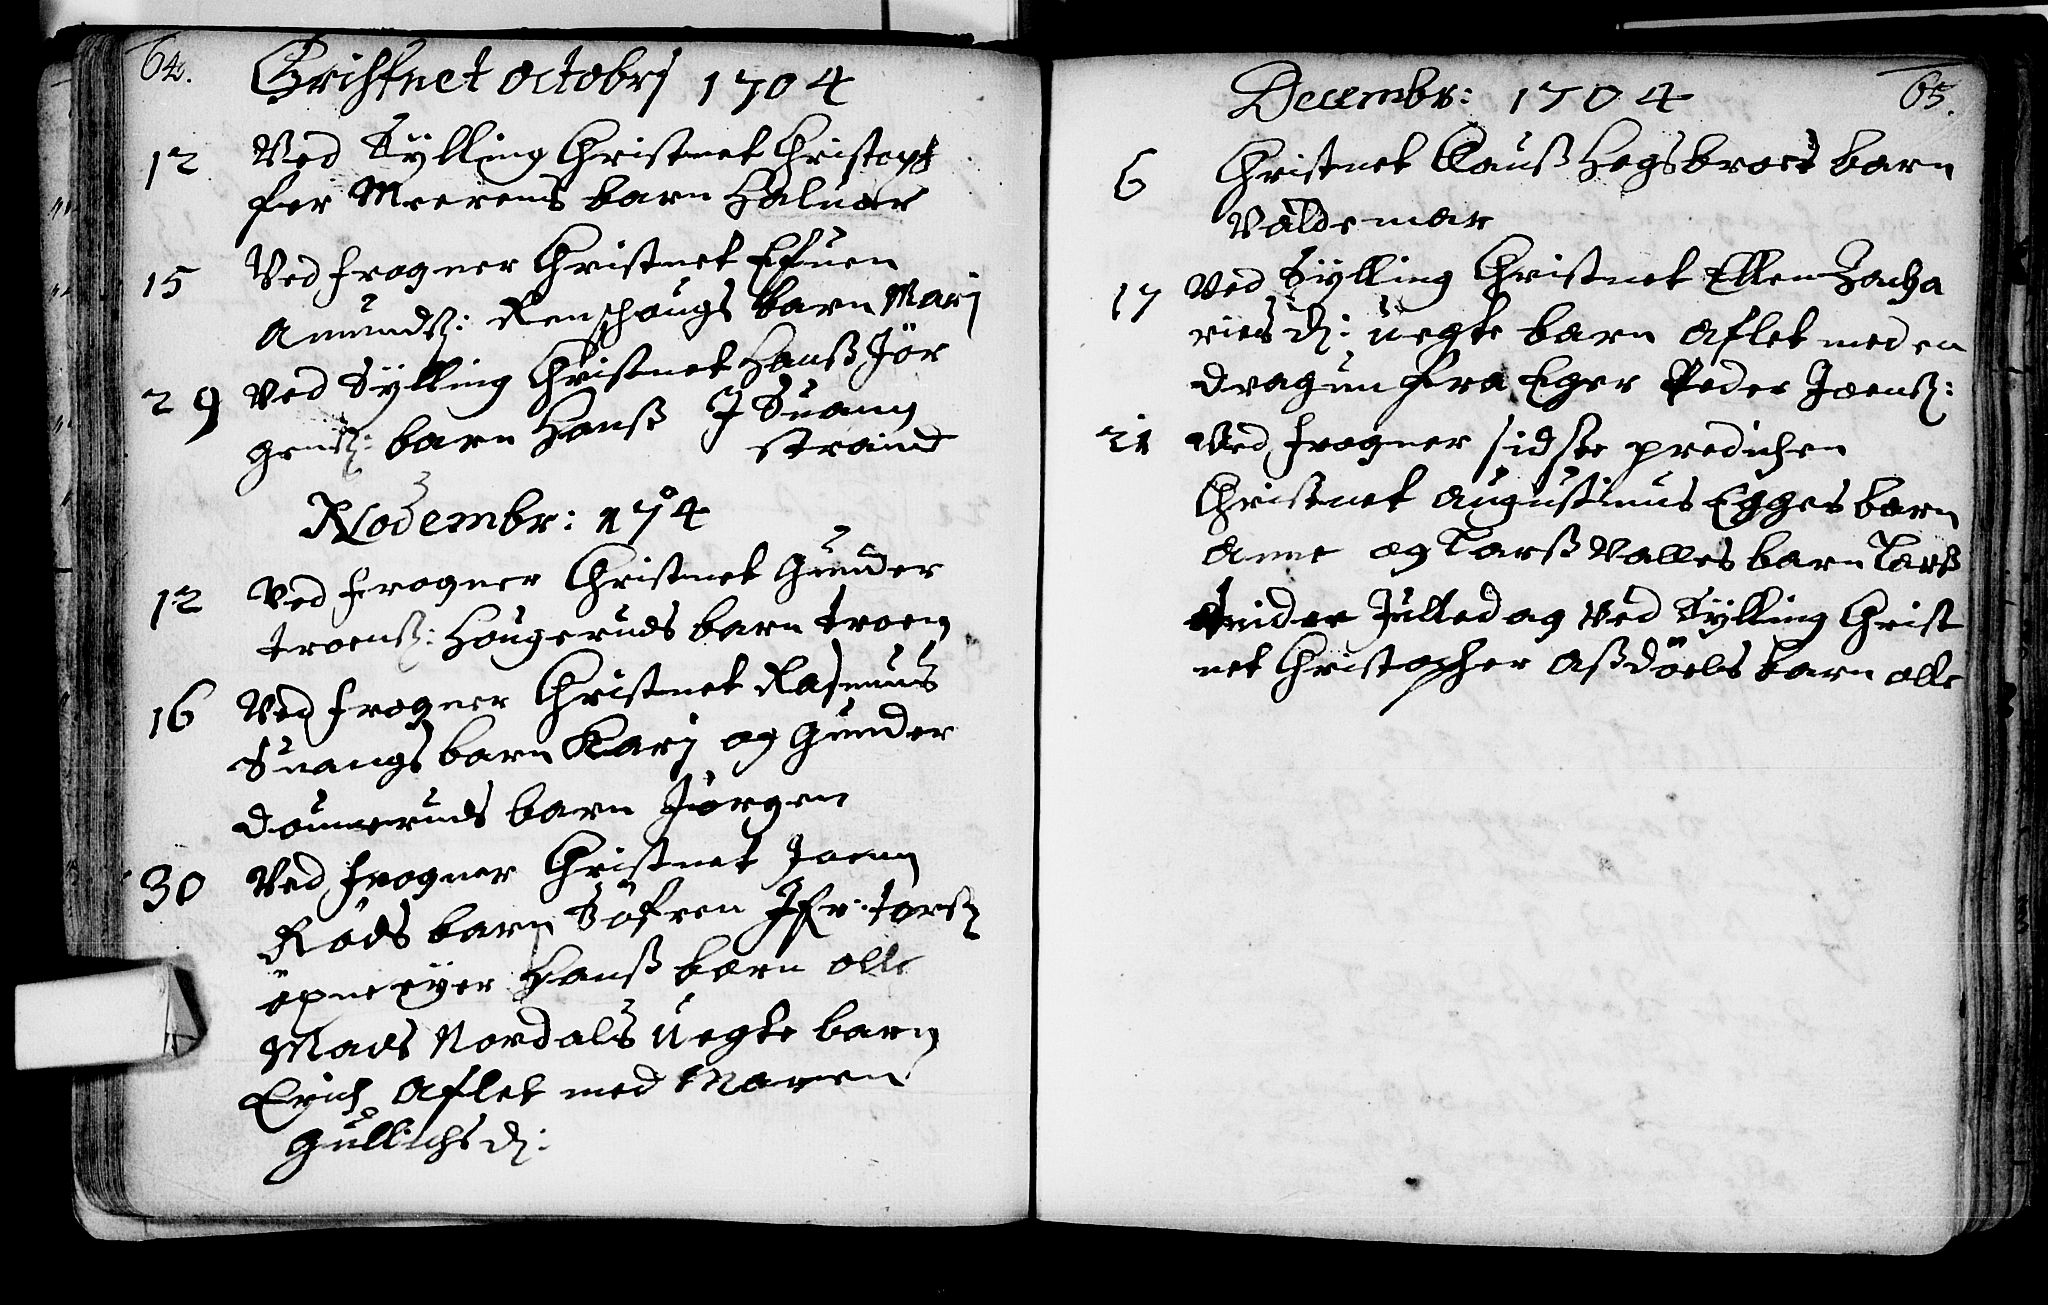 64.
Christnet octobrj 1704
12 Ved Sÿlling Christnet Christoph
fer Meerens barn Haluor
15 Ved frogner Christnet Efuen
Amundß: Renschougs barn Marj
29 Ved Sÿlling Christnet Hanß Jör
genß: barn Hanß J Suang
strand
Novembr: 1704
12 Ved frogner Christnet Gunder
troenß: Hougeruds barn troen
16 Ved frogner Christnet Rasmus
Suangs barn Karj og Gunder
Dounneruds barn Jörgen
30 Ved frogner Christnet Joenn
Röds barn Söfren
Hanß barn olle
Mads Nordals uegte barn
Erich Aflet med Maren
Gullichs d:
65.
Decembr: 1704
6 Christnet Clauß Hegsbroes barn
Valdemar
17 Ved Sÿlling Christnet Ellen Zacha
ries d: uegte barn aflet med en
dragun fra Eger Peder Joenß:
21 Ved frogner sidste predichen
Christnet Augustinus Egges barn
Anne og Larß Valles barn Larß
Anider Julledag Ved Sÿlling Christ
net Christopher Aßdöels barn olle